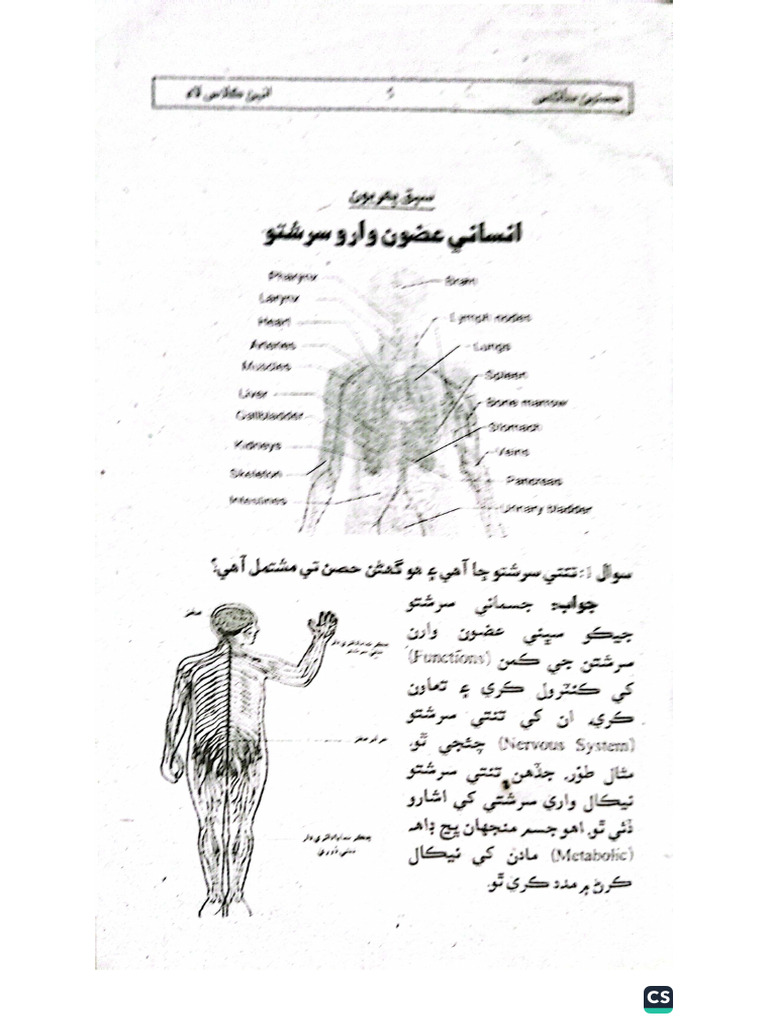 سبق پهريون
انساني عضون وارو سرشتو
Pharynx
Larynx
Heart
Arteries
Muscles
Liver
Gallbladder
Kidneys
Skeleton
Intestines
Brain
Lymph nodes
Lungs
Spleen
Bone marrow
Stomach
Veins
Pancreas
Urinary bladder
سوال 1: تنتي سرشتو ڇا آهي ۽ هو گهڻن حصن تي مشتمل آهي؟
جواب: جسماني سرشتو
جيڪو سڀني عضون وارن
سرشتن جي ڪمن (Functions)
کي ڪنٽرول ڪري ۽ تعاون
ڪري، ان کي تنتي سرشتو
(Nervous System) چئجي ٿو.
مثال طور، جڏهن تنتي سرشتو
نيڪال واري سرشتي کي اشارو
ڏئي ٿو. اهو جسم منجهان ڀڃ ڊاهه
(Metabolic) مادن کي نيڪال
ڪرڻ ۾ مدد ڪري ٿو.
CS